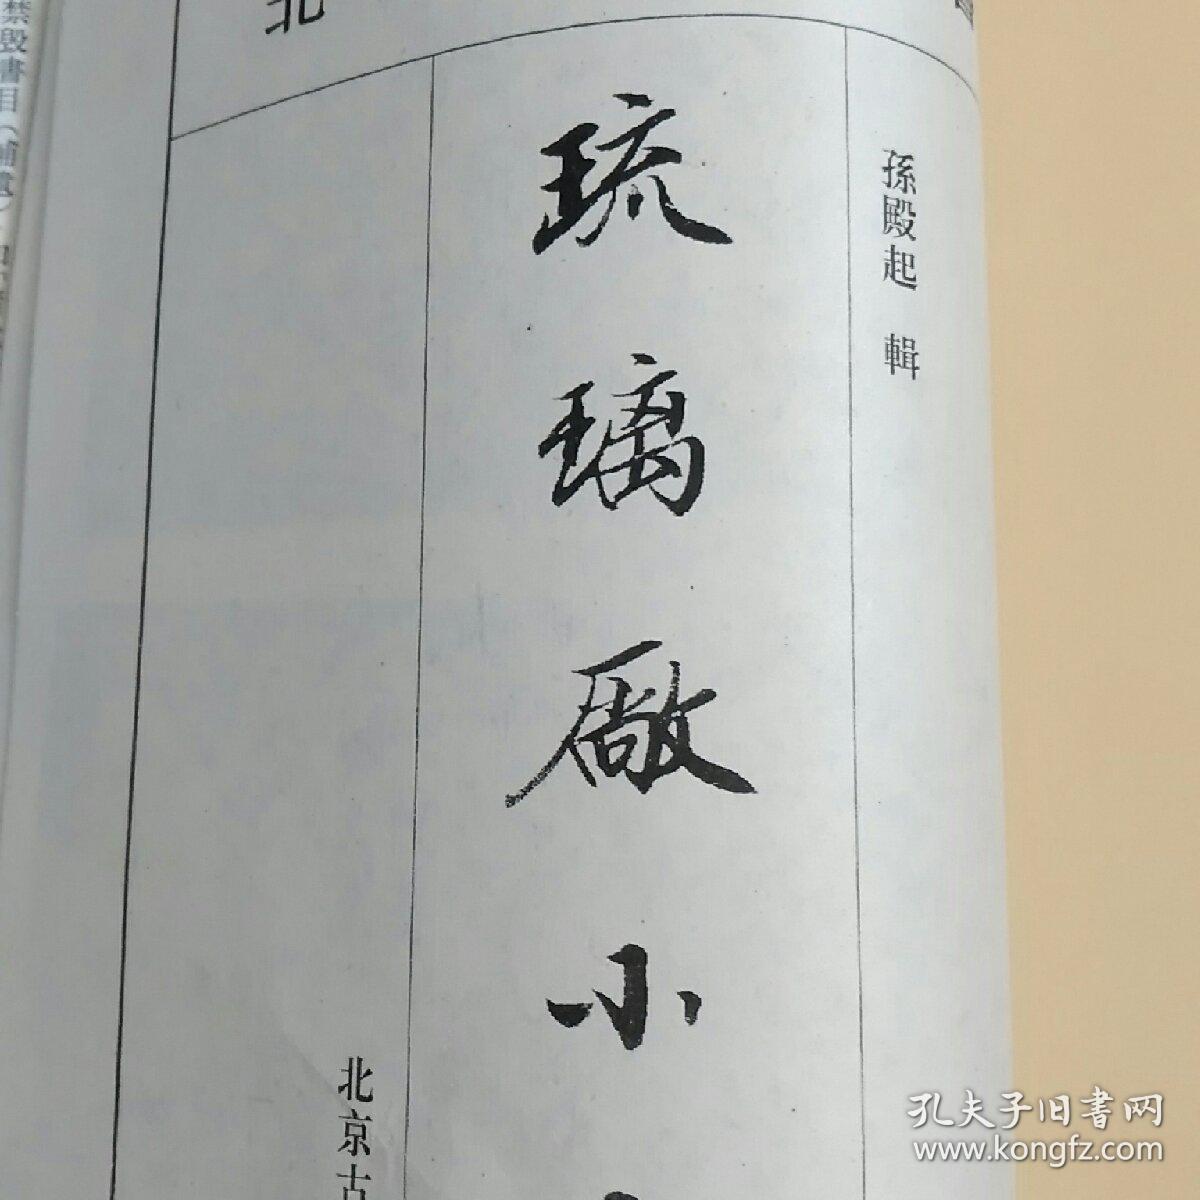 孫殿起 輯
琉璃廠小
北京古
北
禁毀書目（補遺）
孔夫子旧書网
www.kongfz.com